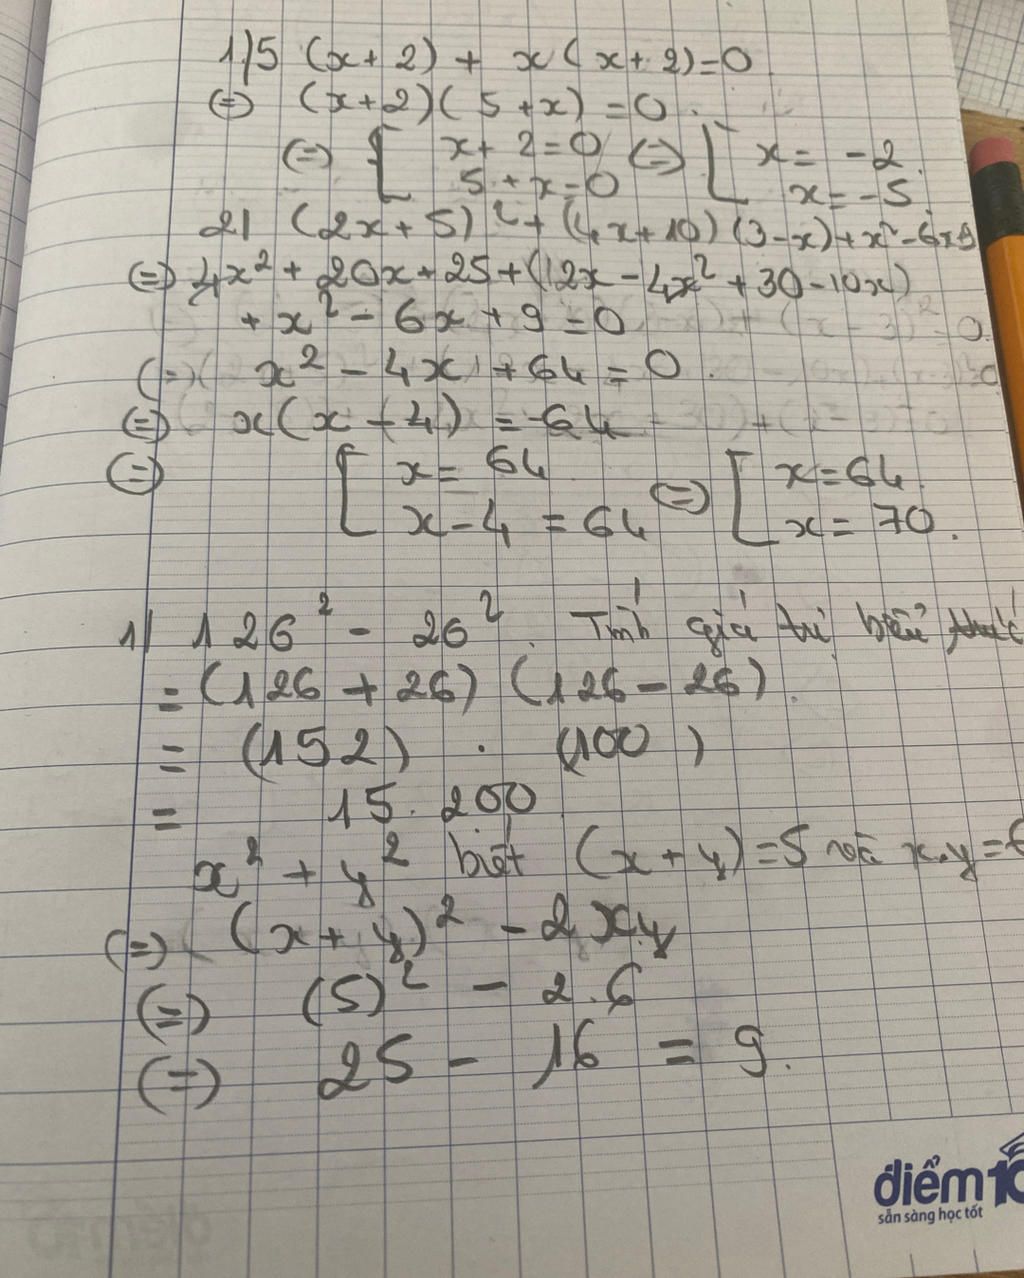 1) 5 (x+2) + x(x+2)=0
(=) (x+2)(5+x) = 0.
(=) [ x+2=0 (=) [ x= -2
5+x=0 x=-5.
2) (2x+5)² + (4x+10)(3-x)+x²-6x9
(=) 4x² + 20x+25+(12x-4x²+30-10x)
+ x² - 6x+9=0
(=) x² - 4x + 64 = 0.
(=) x(x-4) = -64
(=) [ x= 64 (=) [ x=64.
x-4 = 64 x= 70.
1) 126² - 26². Tính giá trị biểu thức
= (126 + 26) (126 - 26).
= (152) . (100)
= 15.200
x² + y² biết (x+y)=5 và x.y=6
(=) (x+y)² - 2xy
(=) (5)² - 2.6
(=) 25 - 16 = 9.
điểm 10
sẵn sàng học tốt